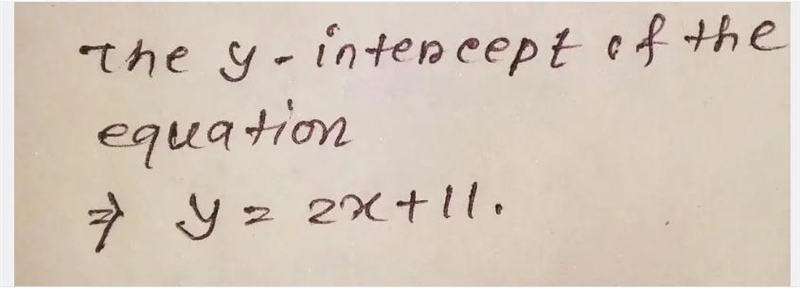 The y-intercept of the
equation
⇒ y = 2x+11.